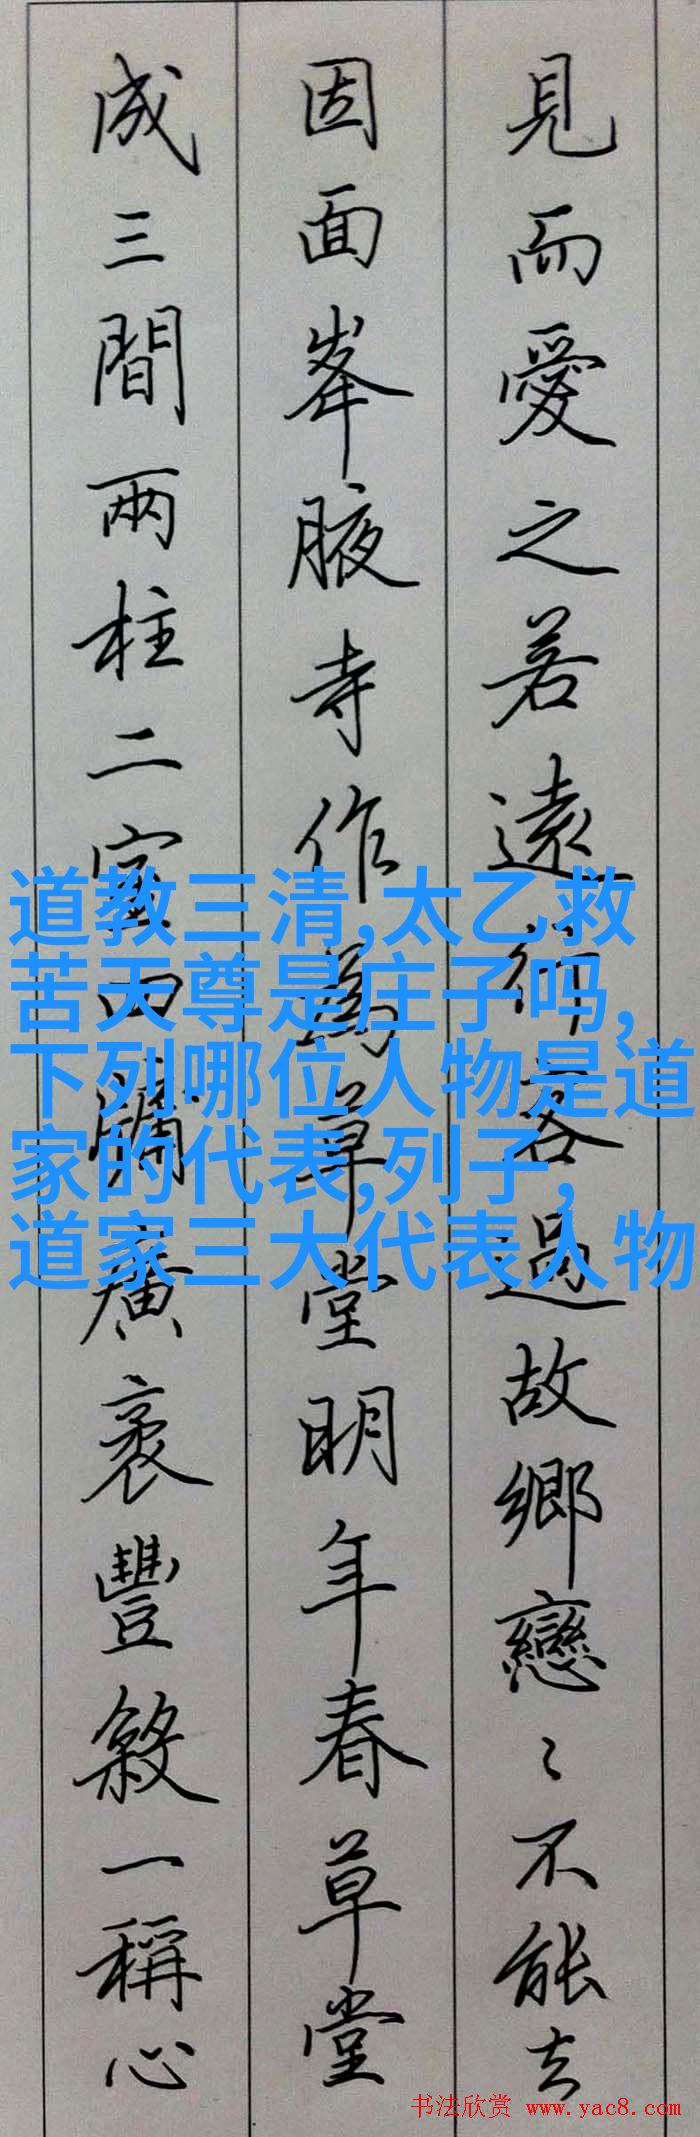 見而愛之若遠行客過故鄉戀〻不能去
因面峯腋寺作為草堂明年春草堂
成三間兩柱二室四牖廣袤豐殺一稱心
道教三清,太乙救
苦天尊是庄子吗,
下列哪位人物是道
家的代表,列子,
道家三大代表人物
书法欣赏 www.yac8.com